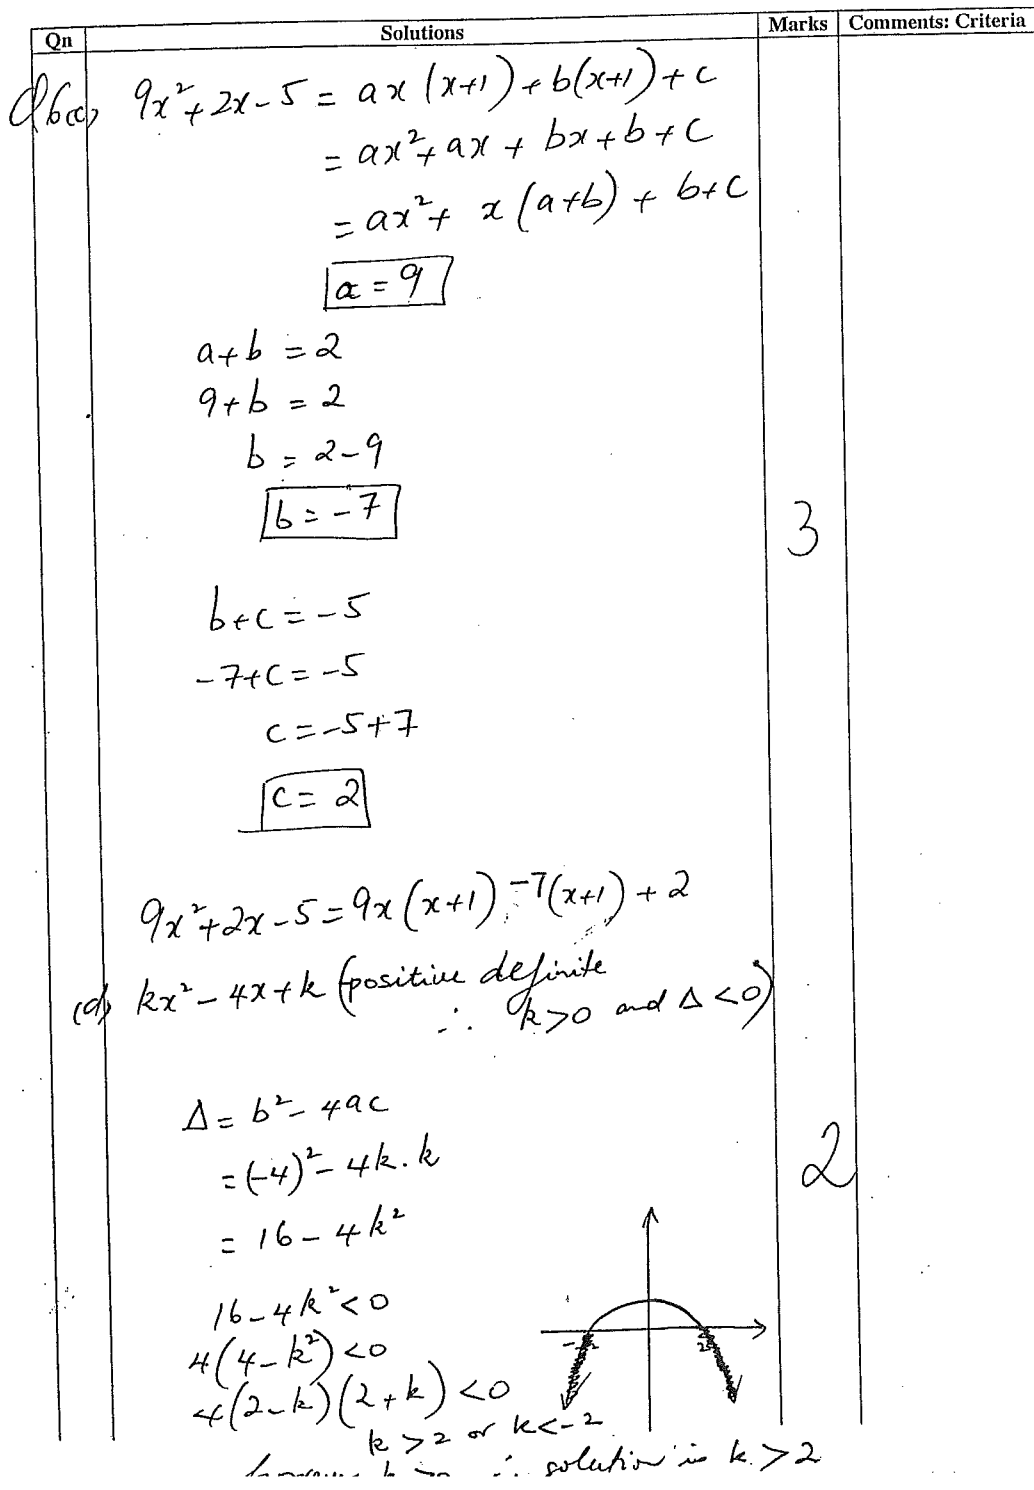 Qn Solutions Marks Comments: Criteria
Q6(c) 9x²+2x-5 = ax(x+1)+b(x+1)+c
= ax²+ax+bx+b+c
= ax²+ x(a+b) + b+c
a = 9
a+b = 2
9+b = 2
b = 2-9
b = -7
3
b+c = -5
-7+c = -5
c = -5+7
c = 2
9x²+2x-5 = 9x(x+1)-7(x+1)+2
(d) kx²-4x+k (positive definite
∴ k>0 and Δ<0)
Δ = b²-4ac
= (-4)²-4k.k
2
= 16-4k²
16-4k²<0
4(4-k²)<0
-2 2
4(2-k)(2+k)<0
k>2 or k<-2
k ∴ solution is k>2